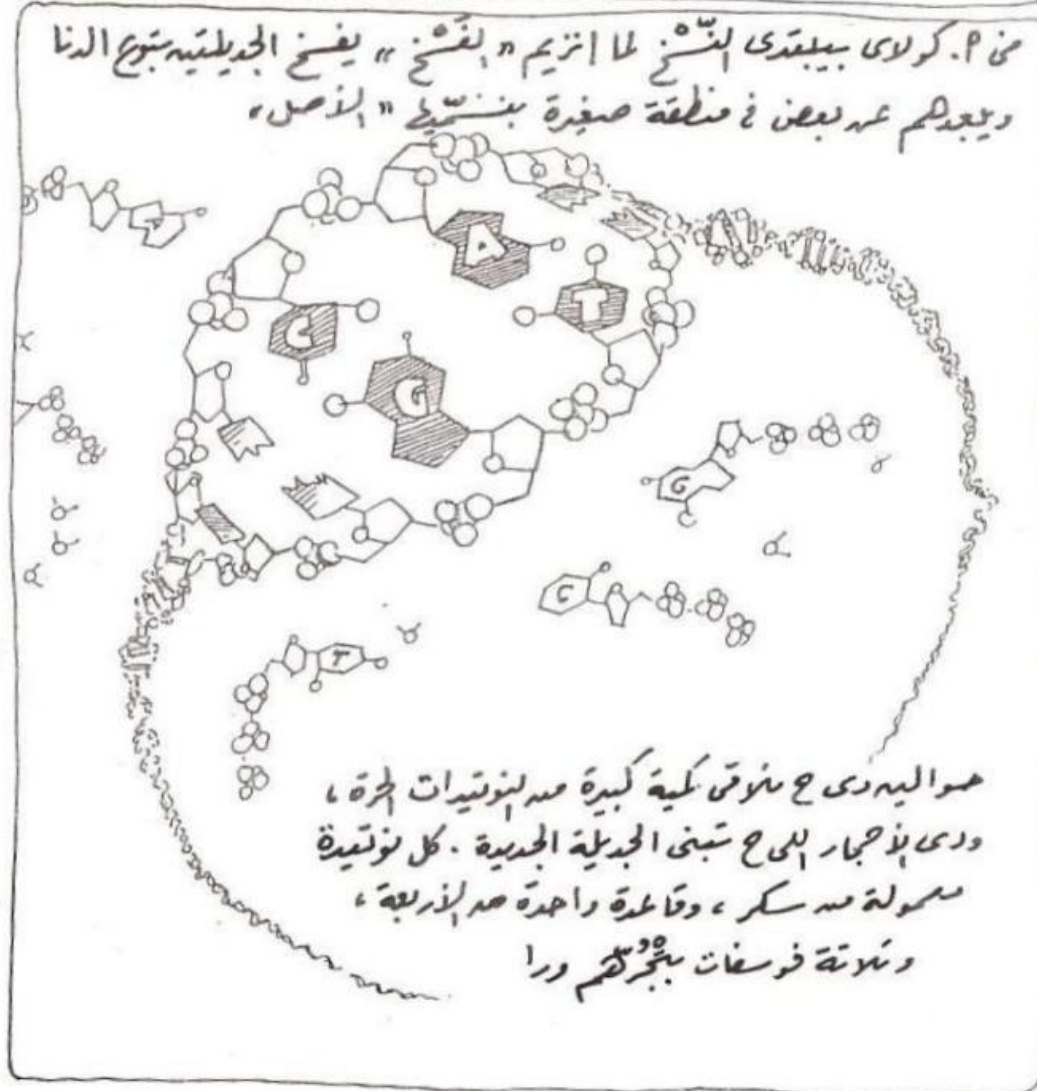 فى م. كولاى بيبتدى النَّسْخ لما إنزيم "الفَسْخ" يفسخ الجديلتين بتوع الدنا
ويبعدهم عن بعض فى منطقة صغيرة بنسمّيها "الأصل"
A
T
C
G
G
C
T
حوالين دى ح نلاقى كمية كبيرة من النوتيدات الحرة،
ودى الأحجار اللى ح تبنى الجديلة الجديدة. كل نوتيدة
معمولة من سكر، وقاعدة واحدة من الأربعة،
وثلاتة فوسفات بتجرّهم ورا